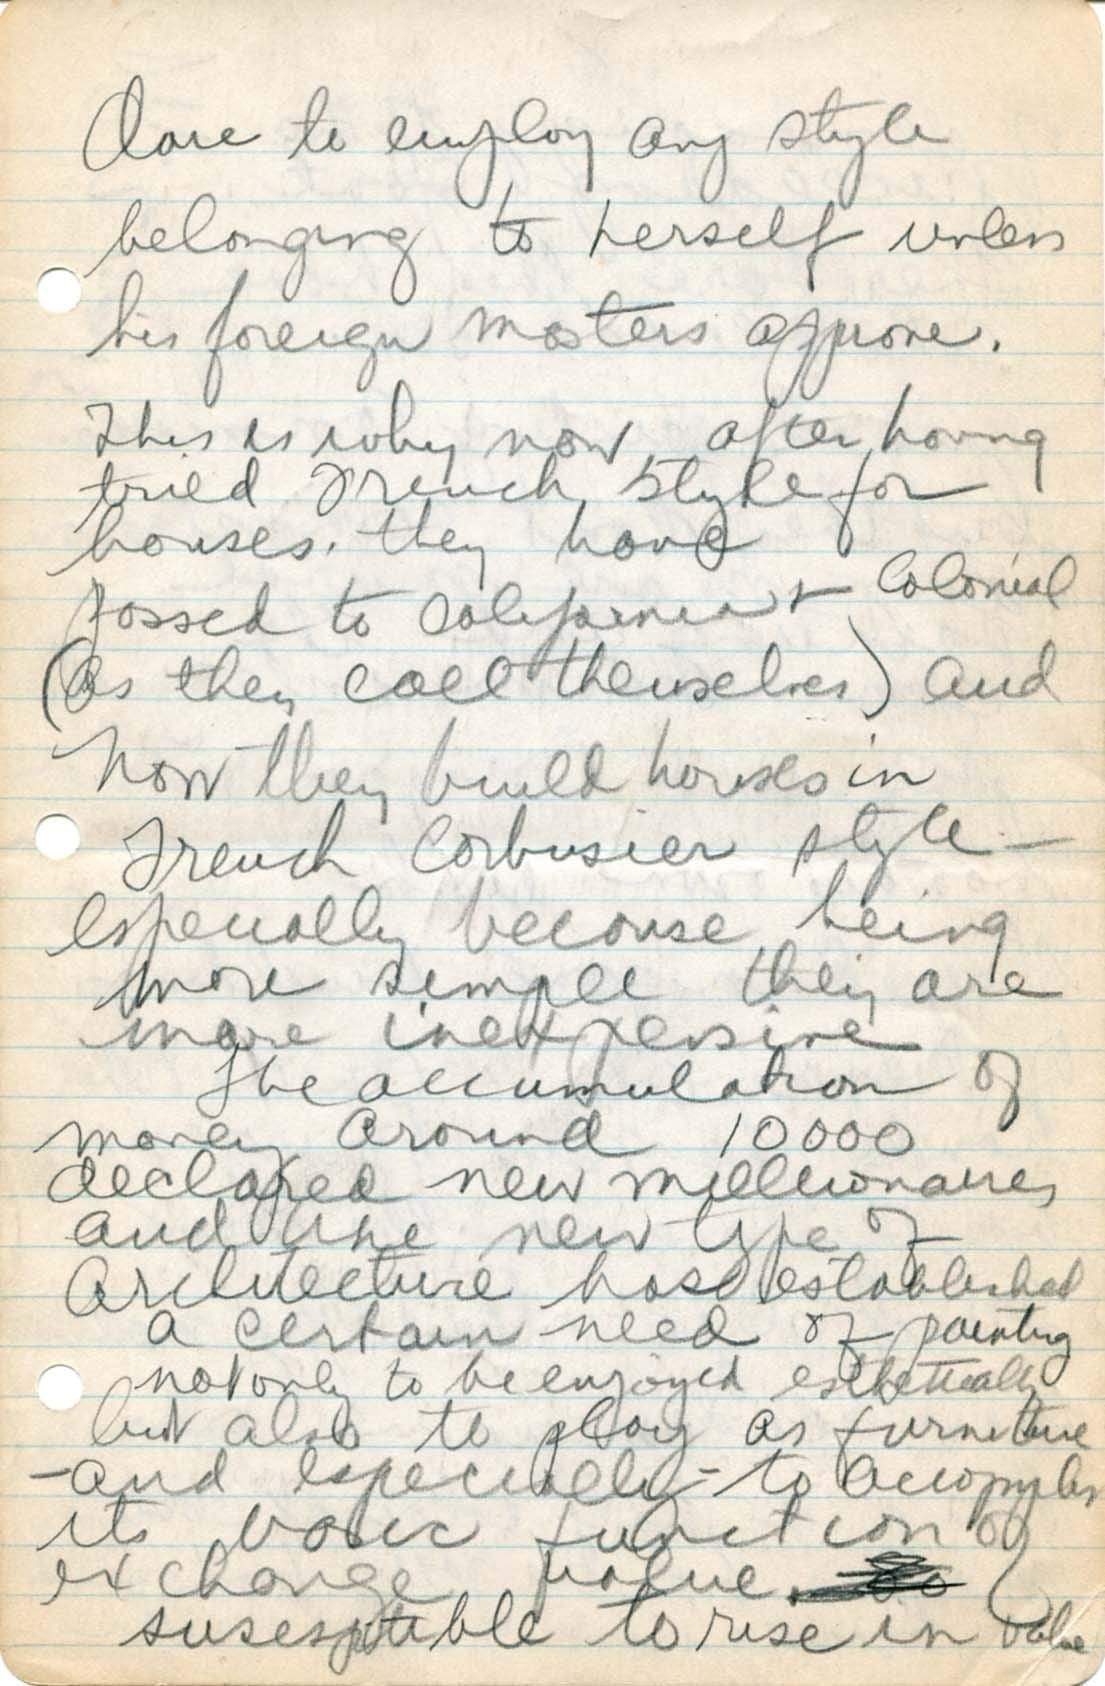 dare to employ any style
belonging to herself unless
his foreign masters approve.
This is why now, after having
tried French style for
houses. they have
passed to California + Colonial
(as they call themselves) and
now they build houses in
French Corbusier style —
especially because being
more simple they are
more inexpensive
The accumulation of
money around 10000
declared new millionaires
and the new type of
Architecture has established
a certain need of painting
not only to be enjoyed esthetically
but also to play as furniture
- and especially - to accomplish
its basic function of
exchange value
susesptible to rise in value